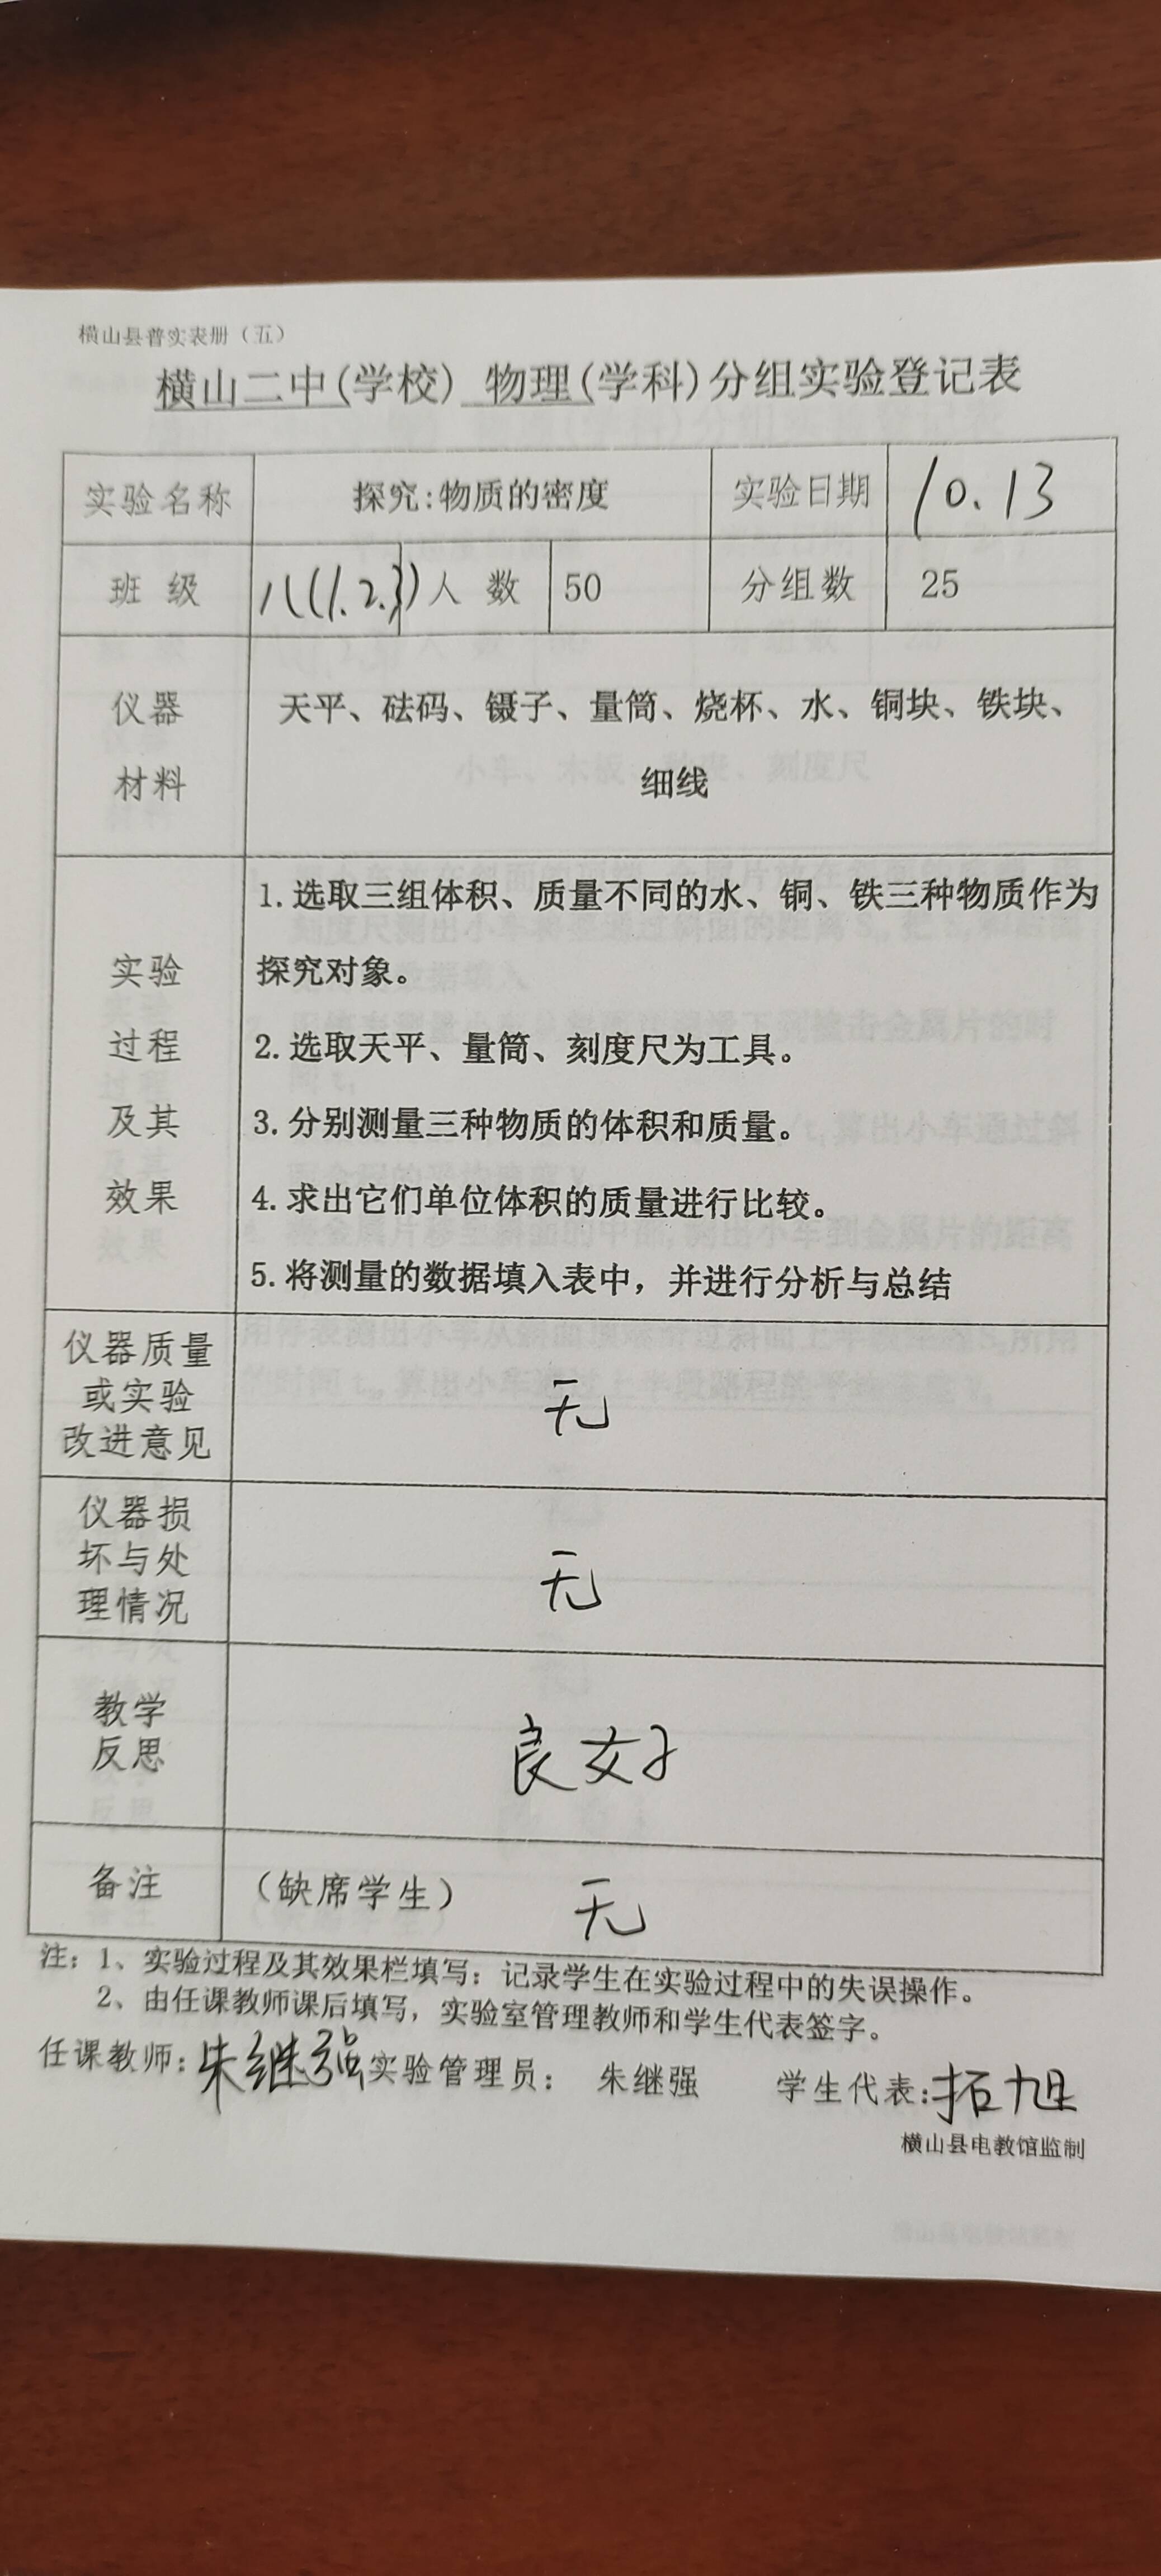 横山县普实表册（五）
横山二中(学校) 物理(学科)分组实验登记表
实验名称 探究:物质的密度 实验日期 10.13
班 级 八(1.2.3) 人 数 50 分组数 25
仪器 天平、砝码、镊子、量筒、烧杯、水、铜块、铁块、
材料 细线
1.选取三组体积、质量不同的水、铜、铁三种物质作为
实验 探究对象。
过程 2.选取天平、量筒、刻度尺为工具。
及其 3.分别测量三种物质的体积和质量。
效果 4.求出它们单位体积的质量进行比较。
5.将测量的数据填入表中，并进行分析与总结
仪器质量
或实验 无
改进意见
仪器损
坏与处 无
理情况
教学
反思 良好
备注 （缺席学生） 无
注：1、实验过程及其效果栏填写：记录学生在实验过程中的失误操作。
2、由任课教师课后填写，实验室管理教师和学生代表签字。
任课教师:朱继强 实验管理员： 朱继强 学生代表:拓旭
横山县电教馆监制